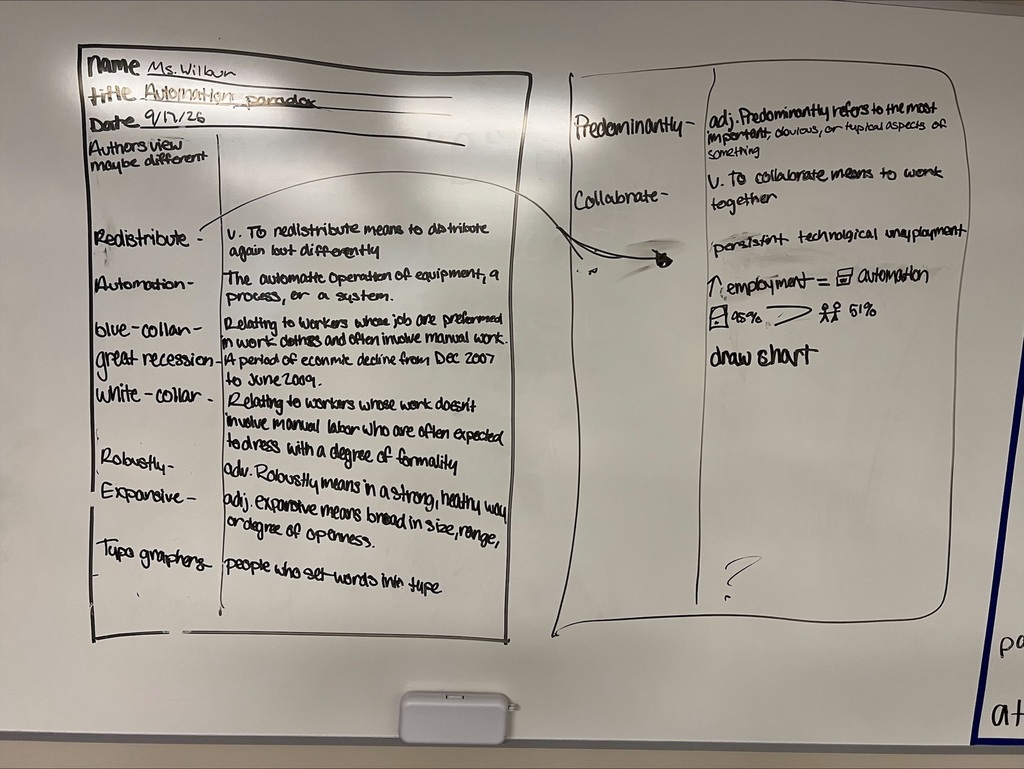 name Ms. Wilbur
title Automation paradox
Date 9/17/25
Authors view
maybe different
Redistribute -
v. To redistribute means to distribute
again but differently
Automation -
The automatic operation of equipment, a
process, or a system.
blue-collar -
Relating to workers whose job are preformed
in work clothes and often involve manual work.
great recession -
A period of econmic decline from DEC 2007
to June 2009.
white-collar -
Relating to workers whose work doesn't
involve manual labor who are often expected
to dress with a degree of formality
Robustly -
adv. Robustly means in a strong, healthy way
Expansive -
adj. expansive means broad in size, range,
or degree of openness.
Typo graphers
people who set words into type
Predominantly -
adj. Predominantly refers to the most
important, obvious, or typical aspects of
something
Collabrate -
v. To collabrate means to work
together
persistint technolgical unemployment
↑ employment = automation
95% > 51%
draw
?
pa
at